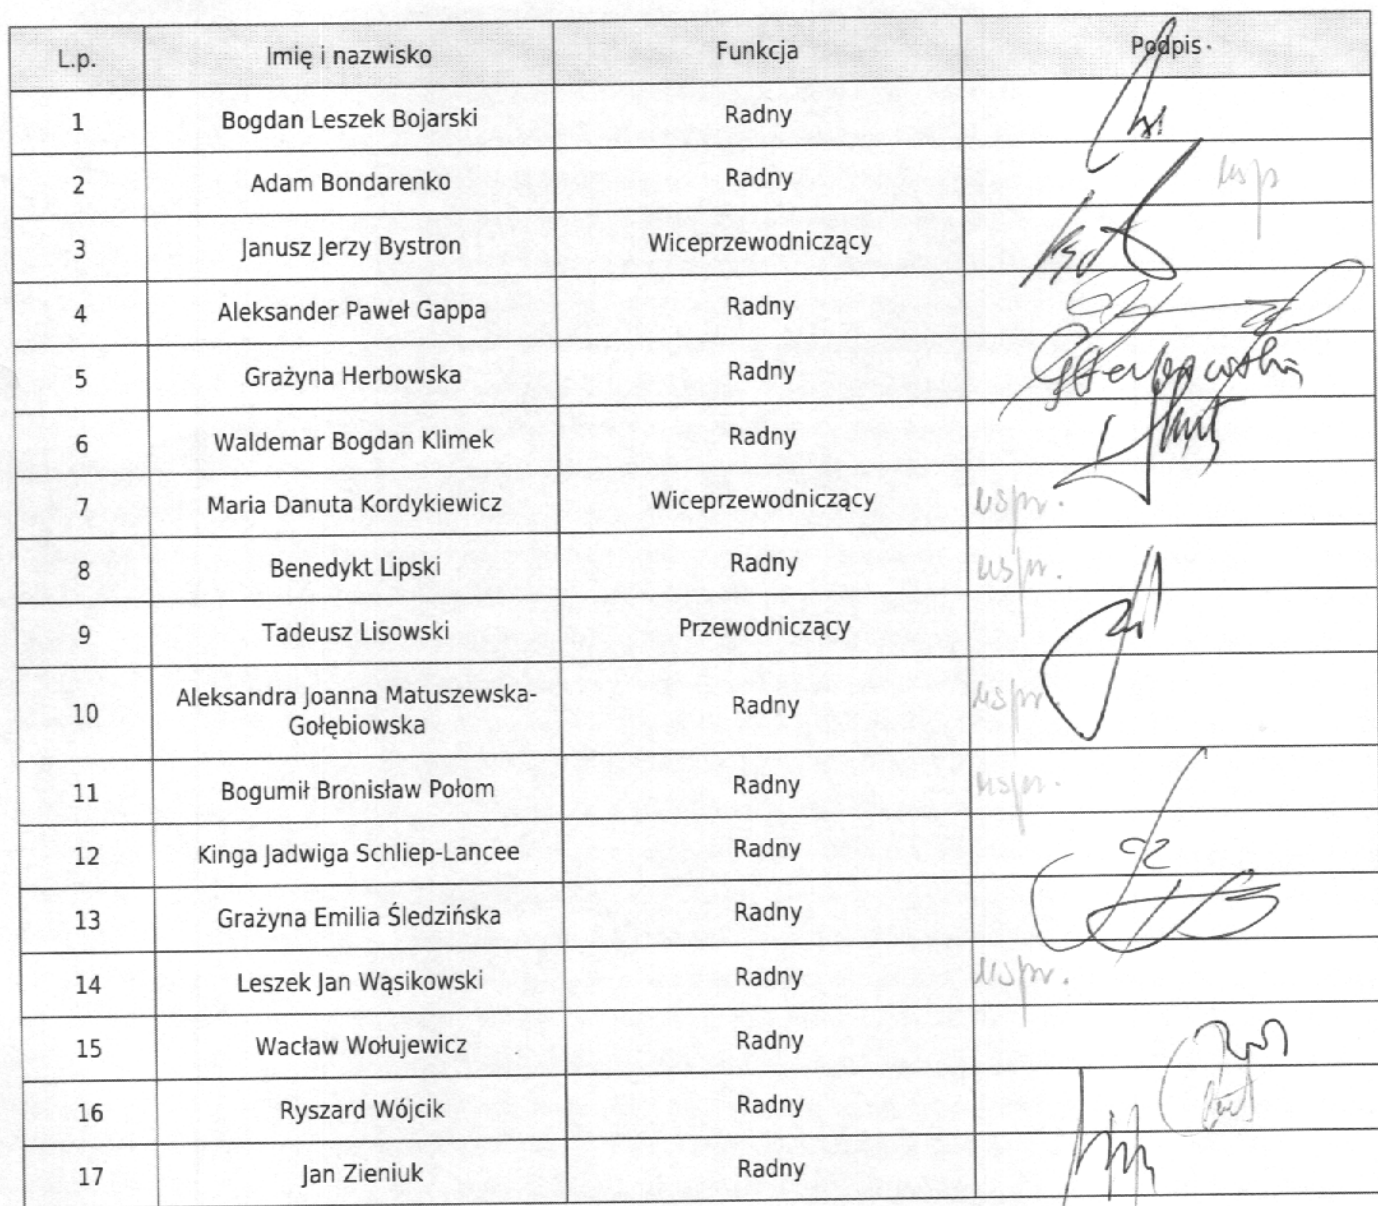 L.p. Imię i nazwisko Funkcja Podpis
1 Bogdan Leszek Bojarski Radny
2 Adam Bondarenko Radny usp
3 Janusz Jerzy Bystron Wiceprzewodniczący
4 Aleksander Paweł Gappa Radny
5 Grażyna Herbowska Radny
6 Waldemar Bogdan Klimek Radny
7 Maria Danuta Kordykiewicz Wiceprzewodniczący uspr.
8 Benedykt Lipski Radny uspr.
9 Tadeusz Lisowski Przewodniczący
10 Aleksandra Joanna Matuszewska-
Gołębiowska Radny uspr.
11 Bogumił Bronisław Połom Radny uspr.
12 Kinga Jadwiga Schliep-Lancee Radny
13 Grażyna Emilia Śledzińska Radny
14 Leszek Jan Wąsikowski Radny uspr.
15 Wacław Wołujewicz Radny
16 Ryszard Wójcik Radny
17 Jan Zieniuk Radny